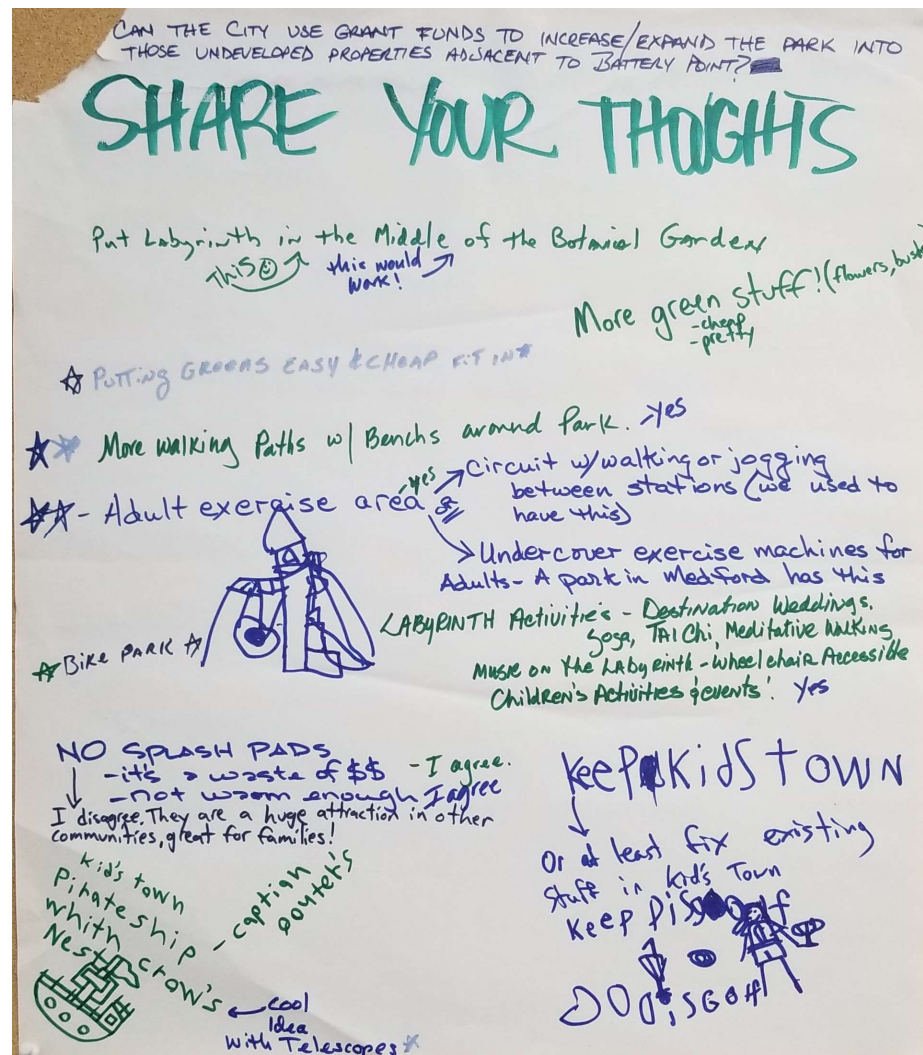 CAN THE CITY USE GRANT FUNDS TO INCREASE/EXPAND THE PARK INTO
THOSE UNDEVELOPED PROPERTIES ADJACENT TO BATTERY POINT?
SHARE YOUR THOUGHTS
Put Labyrinth in the Middle of the Botanical Garden
This
this would
work!
More green stuff! (flowers,
-cheap
-pretty
PUTTING GREENS EASY & CHEAP FIT IN
More walking Paths w/ Benchs around Park. Yes
- Adult exercise area
yes
Circuit w/walking or jogging
between stations (we used to
have this)
Undercover exercise machines for
Adults - A park in Medford has this
BIKE PARK
LABYRINTH Activities - Destination Weddings,
TAI Chi, Meditative WALKING
MUSIC ON the LAbyRINTH - Wheelchair Accessible
ChildRen's Activities & events! Yes
NO SPLASH PADS
- it's a waste of $$ - I agree.
- not warm enough I agree
I disagree. They are a huge attraction in other
communities, great for families!
Kid's town
Pirateship
whith crow's
Nest
- captian
cool
Idea
with Telescopes
Keep Kids TOWN
Or at least fix existing
Stuff in Kid's Town
Keep